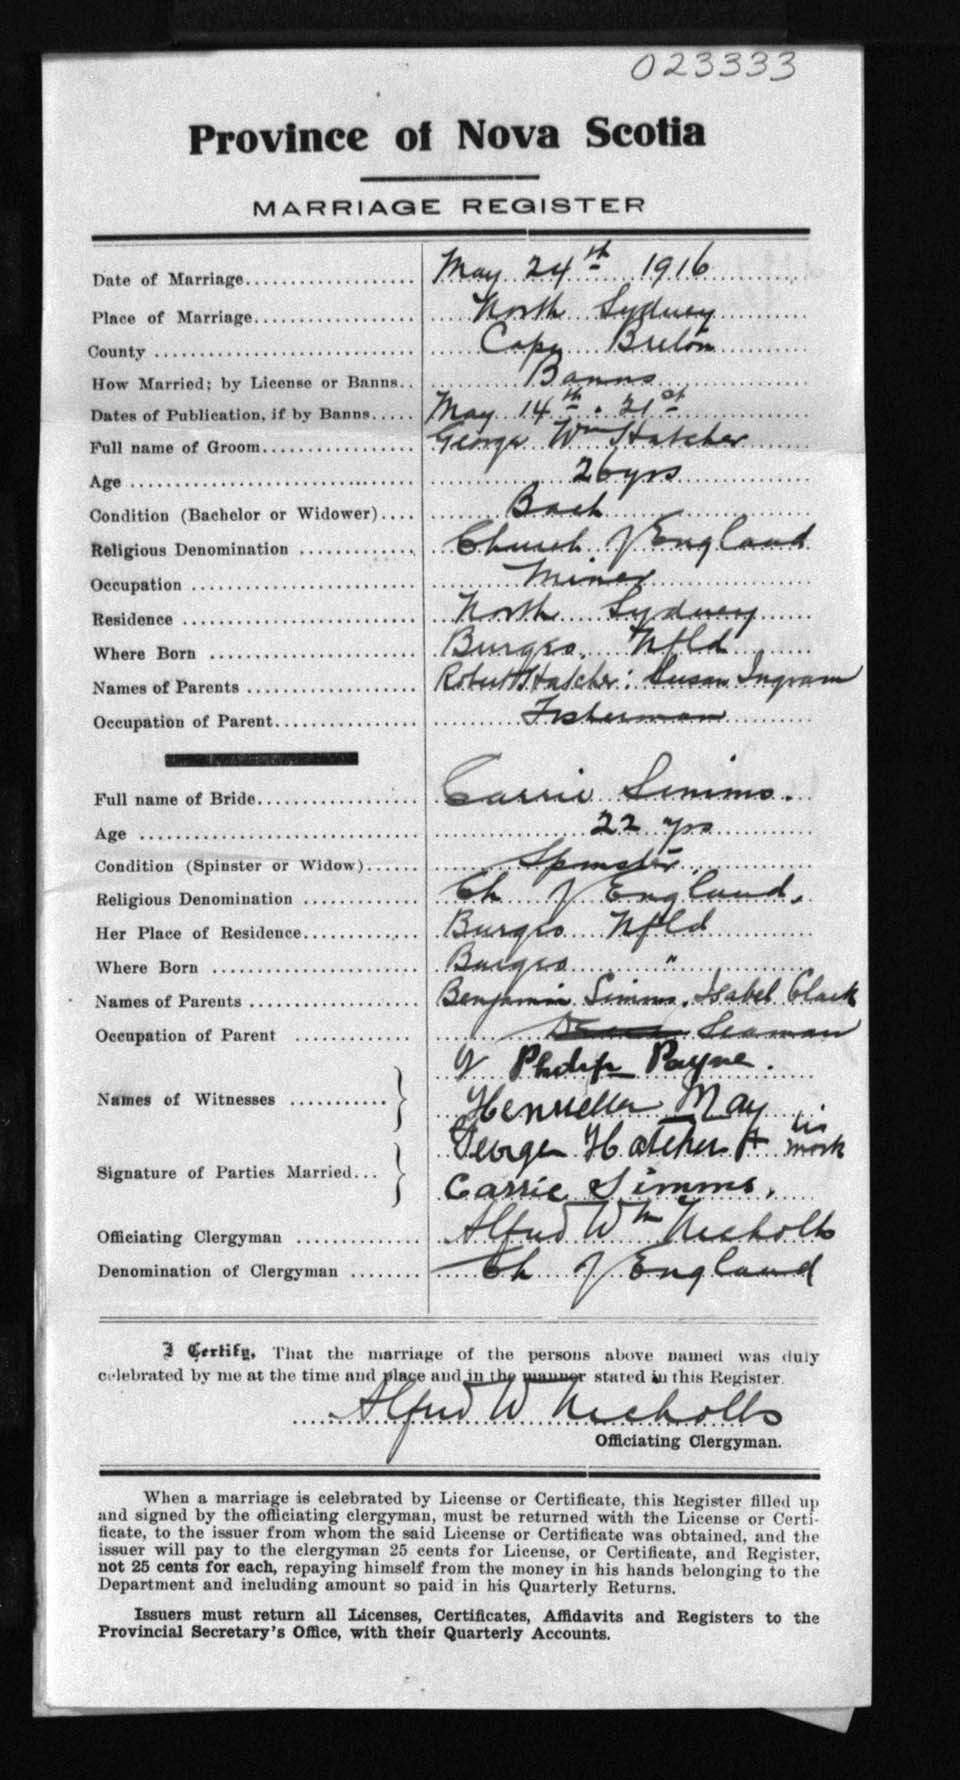 023333
Province of Nova Scotia
MARRIAGE REGISTER
Date of Marriage.................. May 24th 1916
Place of Marriage.................. North Sydney
County .................. Cape Breton
How Married; by License or Banns.. Banns
Dates of Publication, if by Banns..... May 14th . 21st
Full name of Groom.................. George Wm Hatcher
Age .................. 26 yrs
Condition (Bachelor or Widower).... Bach
Religious Denomination ............. Church of England
Occupation .................. Miner
Residence .................. North Sydney
Where Born .................. Burgeo. Nfld
Names of Parents .................. Robert Hatcher : Susan Ingram
Occupation of Parent.................. Fisherman
Full name of Bride.................. Carrie Simms.
Age .................. 22 yrs
Condition (Spinster or Widow)...... Spinster
Religious Denomination ............. Ch of England.
Her Place of Residence............. Burgeo Nfld
Where Born .................. Burgeo "
Names of Parents .................. Benjamin Simms. Isabel Clark
Occupation of Parent ............. Seaman
Names of Witnesses ........... } Philip Payne.
Henrietta May
Signature of Parties Married... } George Hatcher + his mark
Carrie Simms.
Officiating Clergyman ............. Alfred Wm Nicholls
Denomination of Clergyman ........ Ch of England
I Certify, That the marriage of the persons above named was duly
celebrated by me at the time and place and in the manner stated in this Register.
Alfred W Nicholls
Officiating Clergyman.
When a marriage is celebrated by License or Certificate, this Register filled up
and signed by the officiating clergyman, must be returned with the License or Certi-
ficate, to the issuer from whom the said License or Certificate was obtained, and the
issuer will pay to the clergyman 25 cents for License, or Certificate, and Register,
not 25 cents for each, repaying himself from the money in his hands belonging to the
Department and including amount so paid in his Quarterly Returns.
Issuers must return all Licenses, Certificates, Affidavits and Registers to the
Provincial Secretary's Office, with their Quarterly Accounts.